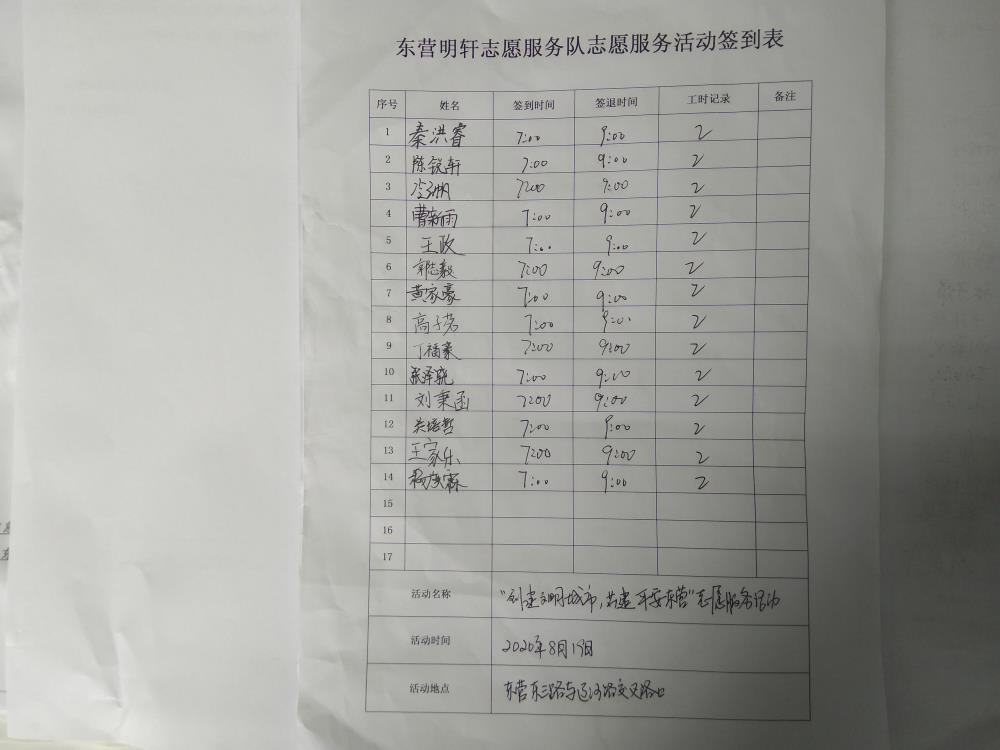 东营明轩志愿服务队志愿服务活动签到表
序号 姓名 签到时间 签退时间 工时记录 备注
1 秦洪睿 7:00 9:00 2
2 陈锐轩 7:00 9:00 2
3 7:00 9:00 2
4 曹新雨 7:00 9:00 2
5 王政 7:00 9:00 2
6 郭志毅 7:00 9:00 2
7 黄家豪 7:00 9:00 2
8 高子茗 7:00 9:00 2
9 丁福豪 7:00 9:00 2
10 张泽骁 7:00 9:00 2
11 刘秉函 7:00 9:00 2
12 关培哲 7:00 9:00 2
13 王家乐 7:00 9:00 2
14 杨庆霖 7:00 9:00 2
15
16
17
活动名称 “创建文明城市,共建平安东营”志愿服务活动
活动时间 2020年8月19日
活动地点 东营东三路与辽河路交叉路口